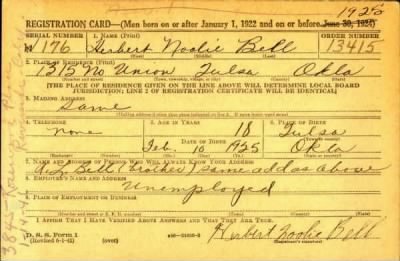 1925
REGISTRATION CARD—(Men born on or after January 1, 1922 and on or before June 30, 1924)
SERIAL NUMBER 1. NAME (Print) ORDER NUMBER
N 176 Herbert Noolie Bell 13415
(First) (Middle) (Last)
2. PLACE OF RESIDENCE (Print)
1315 No Union Tulsa Okla
(Number and street) (Town, township, village, or city) (County) (State)
[THE PLACE OF RESIDENCE GIVEN ON THE LINE ABOVE WILL DETERMINE LOCAL BOARD
JURISDICTION; LINE 2 OF REGISTRATION CERTIFICATE WILL BE IDENTICAL]
3. MAILING ADDRESS
Same
4. TELEPHONE 5. AGE IN YEARS 6. PLACE OF BIRTH
None 18 Tulsa
DATE OF BIRTH
Feb. 10 1925 Okla
(Mo.) (Day) (Yr.)
7. NAME AND ADDRESS OF PERSON WHO WILL ALWAYS KNOW YOUR ADDRESS
Bell (brother) same add as above
8. EMPLOYER'S NAME AND ADDRESS
Unemployed
9. PLACE OF EMPLOYMENT OR BUSINESS
(Number and street or R. F. D. number) (Town) (County) (State)
I AFFIRM THAT I HAVE VERIFIED ABOVE ANSWERS AND THAT THEY ARE TRUE.
D. S. S. Form 1
(Revised 6-1-42) (over) Herbert Noolie Bell
(Registrant's signature)
3845